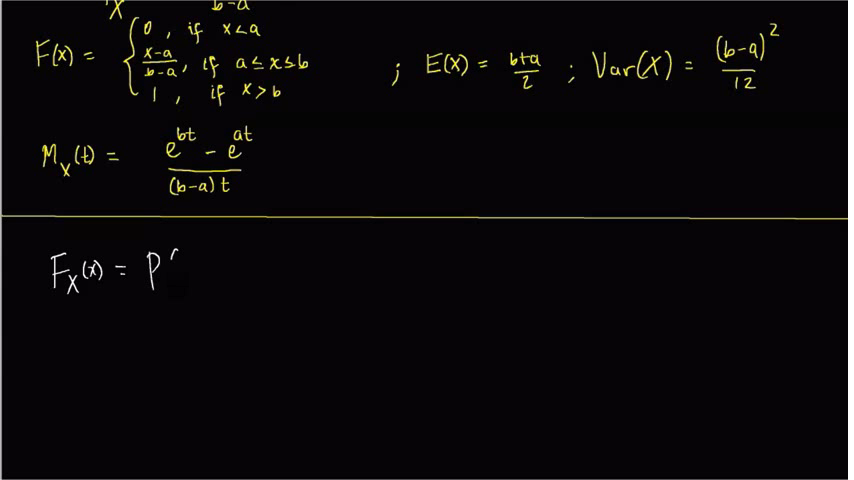 X b-a
F(x) = { 0, if x<a
x-a/b-a, if a≤x≤b
1, if x>b
; E(x) = b+a/2 ; Var(X) = (b-a)²/12
M_X(t) = e^bt - e^at / (b-a)t
F_X(x) = P(